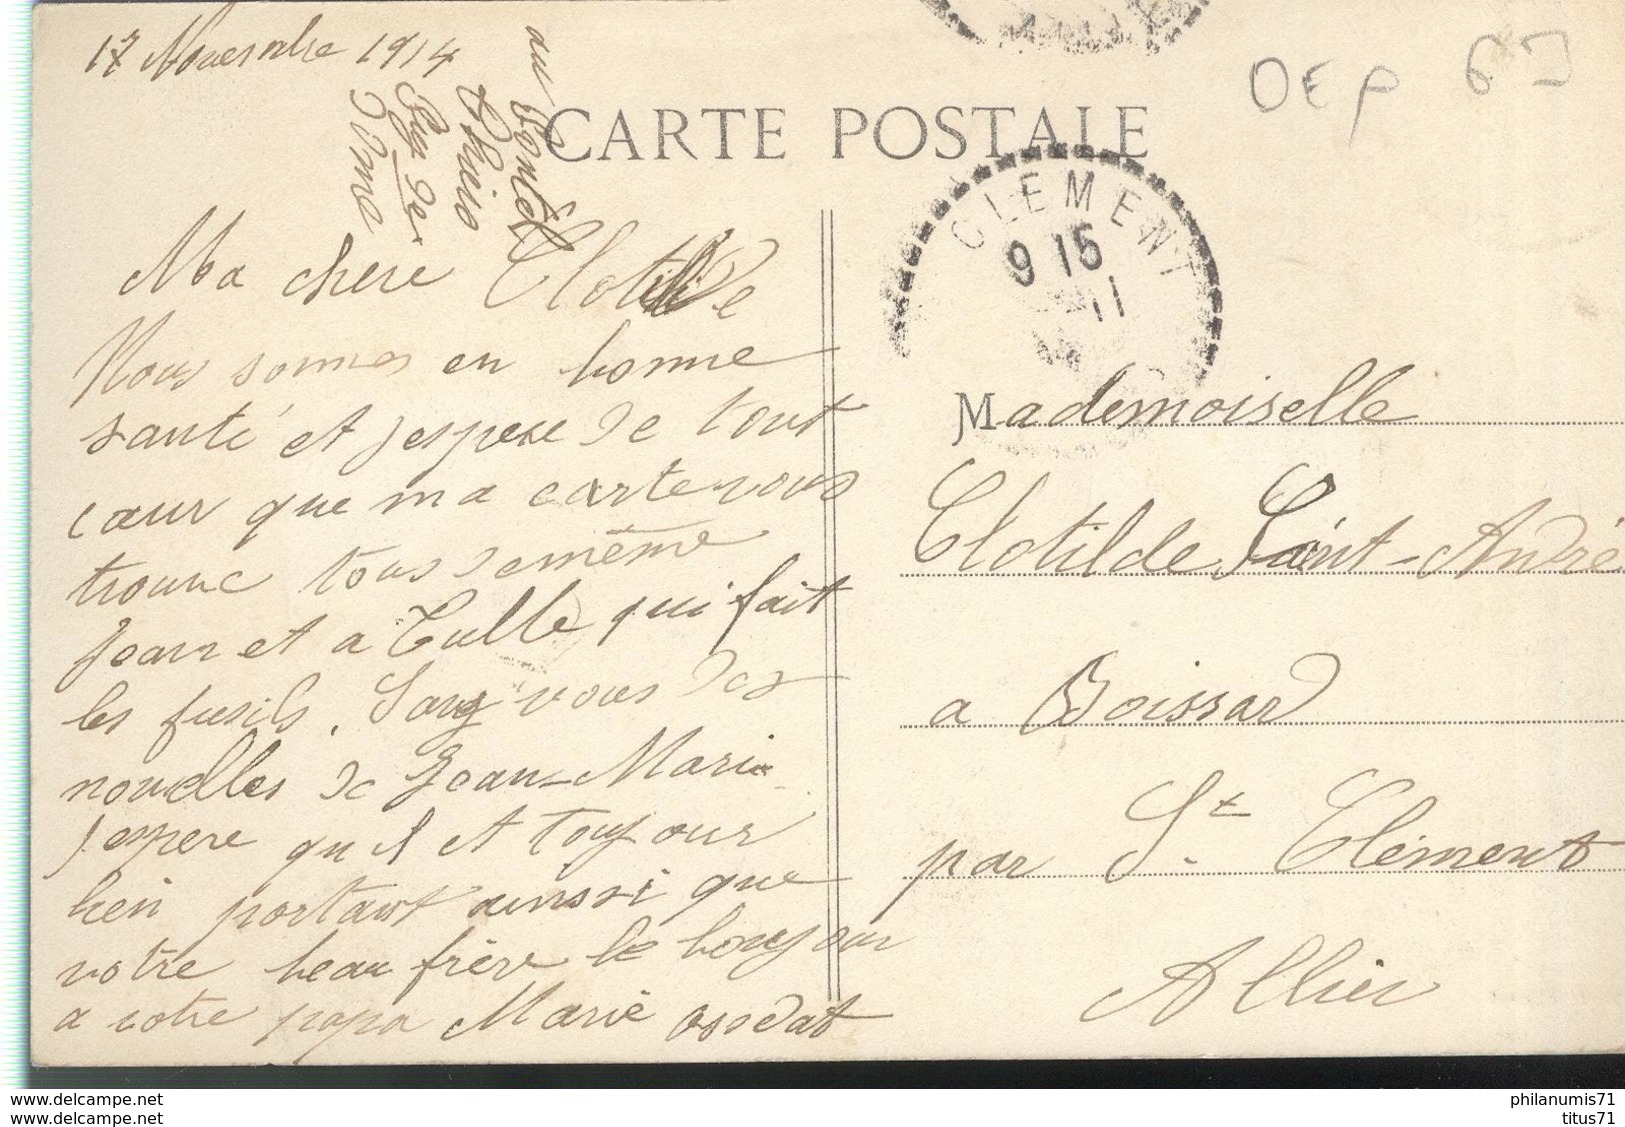 17 Novembre 1914
au Pontel
Puy de
Dôme
CARTE POSTALE
OEP
CLEMENT
9 15
11
Ma chere Clotilde
Nous sommes en bonne
santé et jespere de tout
cœur que ma carte vous
trouve tous de même
Jean et a Tulle qui fait
les fusils. Savez vous des
nouvelles de Jean-Marie
jespere qu il et toujour
bien portant ainssi que
votre beau frère le bonjour
a votre papa Marie
Mademoiselle
Clotilde Saint-André
a Boissard
par St. Clément
Allier
www.delcampe.net
www.delcampe.net
philanumis71
titus71